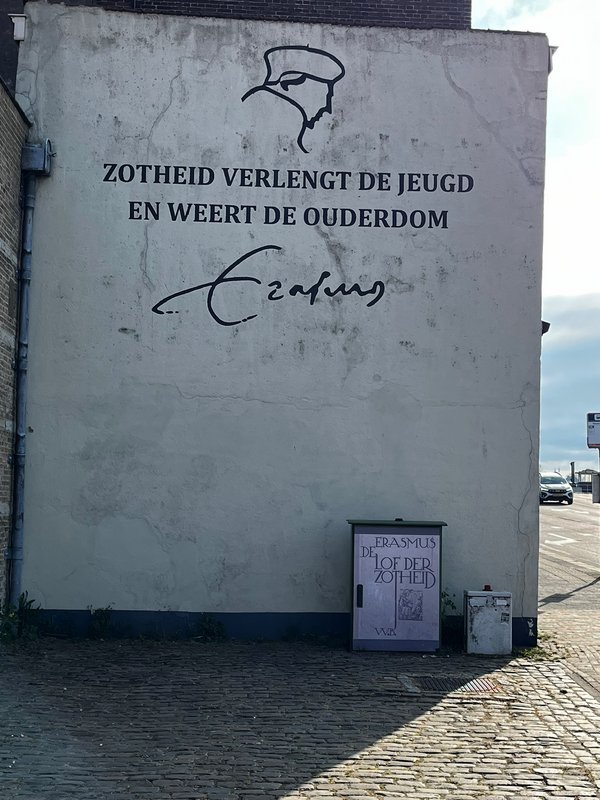 ZOTHEID VERLENGT DE JEUGD
EN WEERT DE OUDERDOM
Erasmus
ERASMUS
DE
LOF DER
ZOTHEID